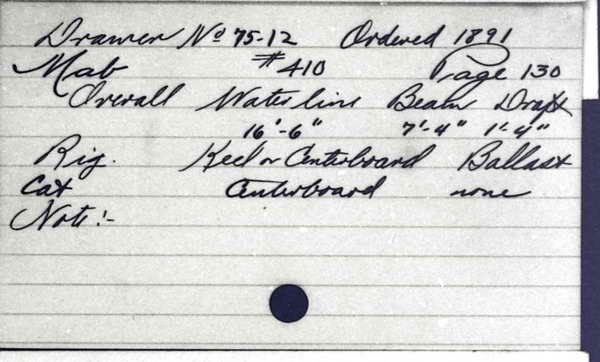 Drawer Nº 75-12 Ordered 1891
Mab #410 Page 130
Overall Waterline Beam Draft
16'-6" 7'-4" 1'-4"
Rig. Keel or Centerboard Ballast
Cat Centerboard none
Note:-